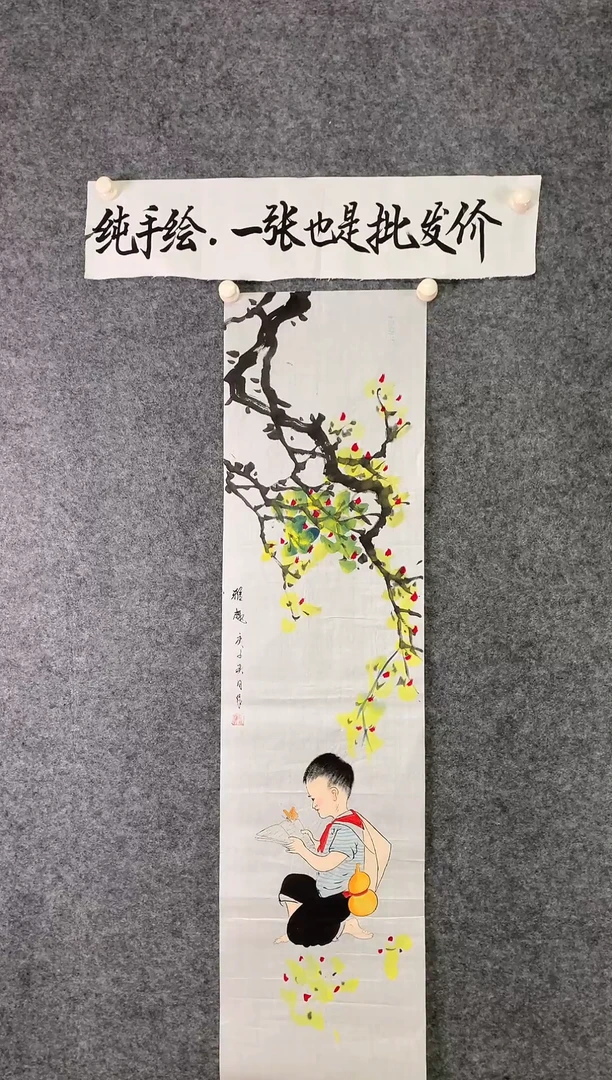 纯手绘.一张也是批发价
雅趣 庚子